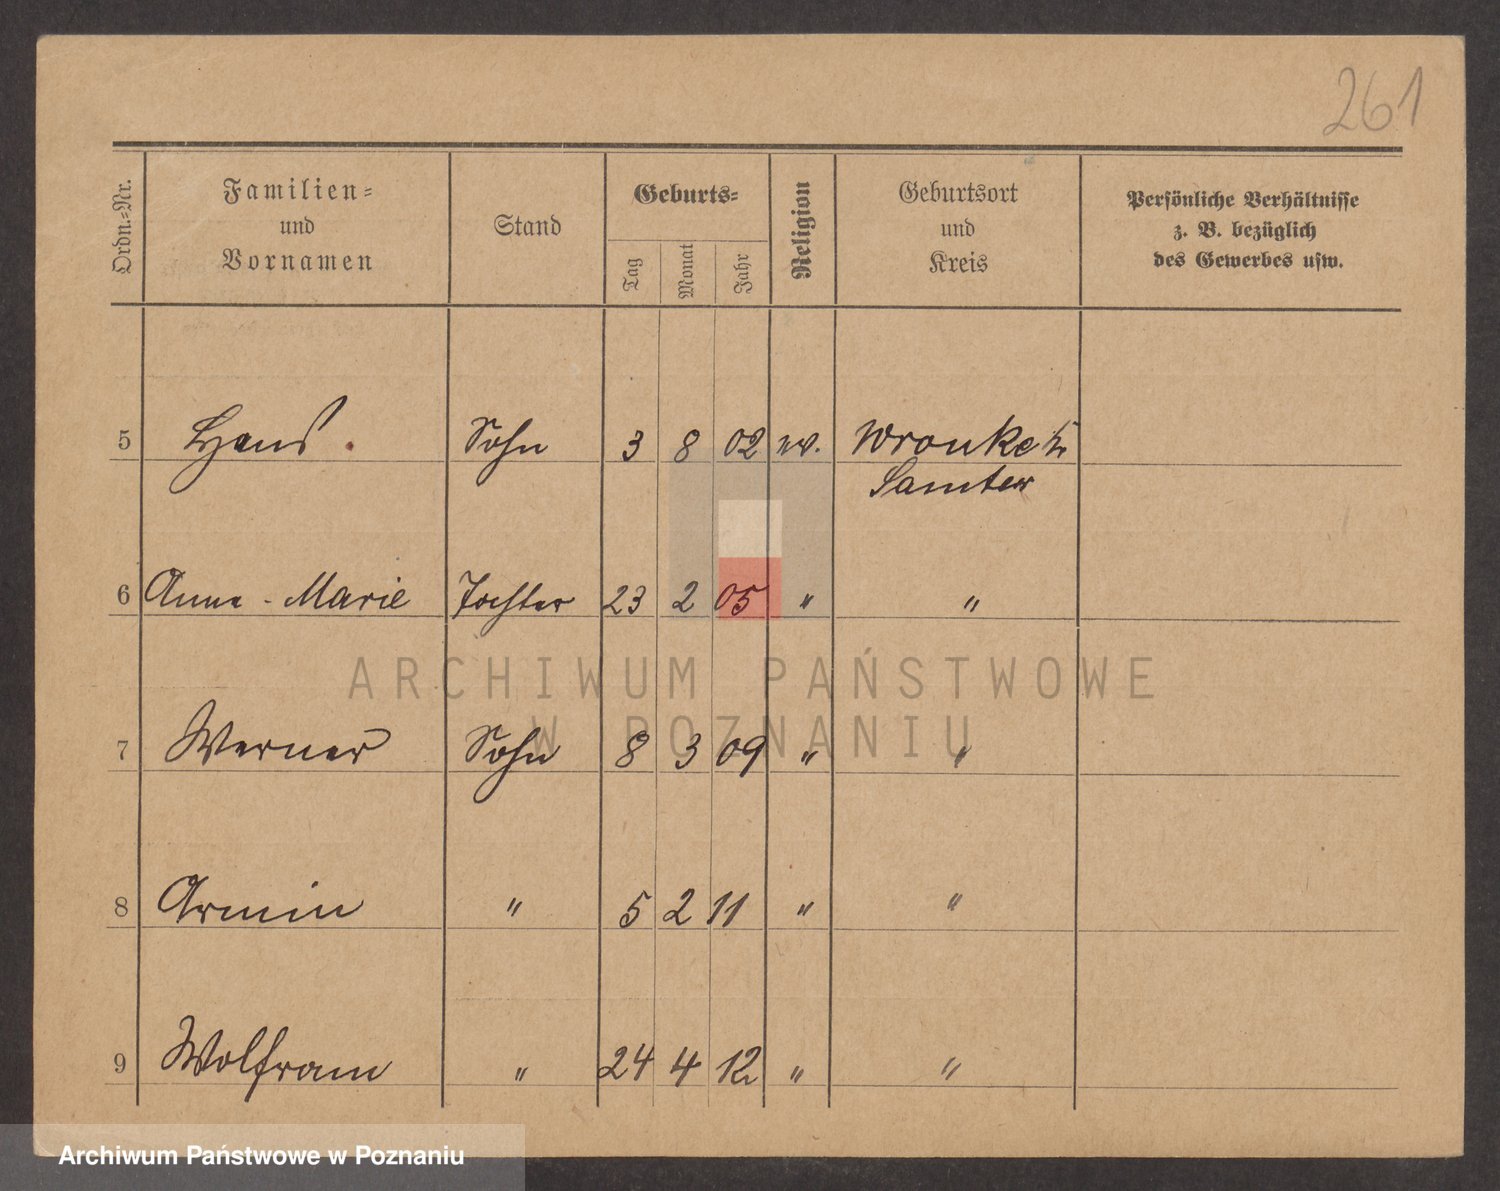 261
Ordn.-Nr.
Familien-
und
Vornamen
Stand
Geburts-
Tag
Monat
Jahr
Religion
Geburtsort
und
Kreis
Persönliche Verhältnisse
z. B. bezüglich
des Gewerbes usw.
5 Hans. Sohn 3 8 02 Wronke
Samter
6 Anna - Marie Tochter 23 2 05 " "
ARCHIWUM PAŃSTWOWE
W POZNANIU
7 Werner Sohn 8 3 09 " "
8 Armin " 5 2 11 " "
9 Wolfram " 24 4 12 " "
Archiwum Państwowe w Poznaniu